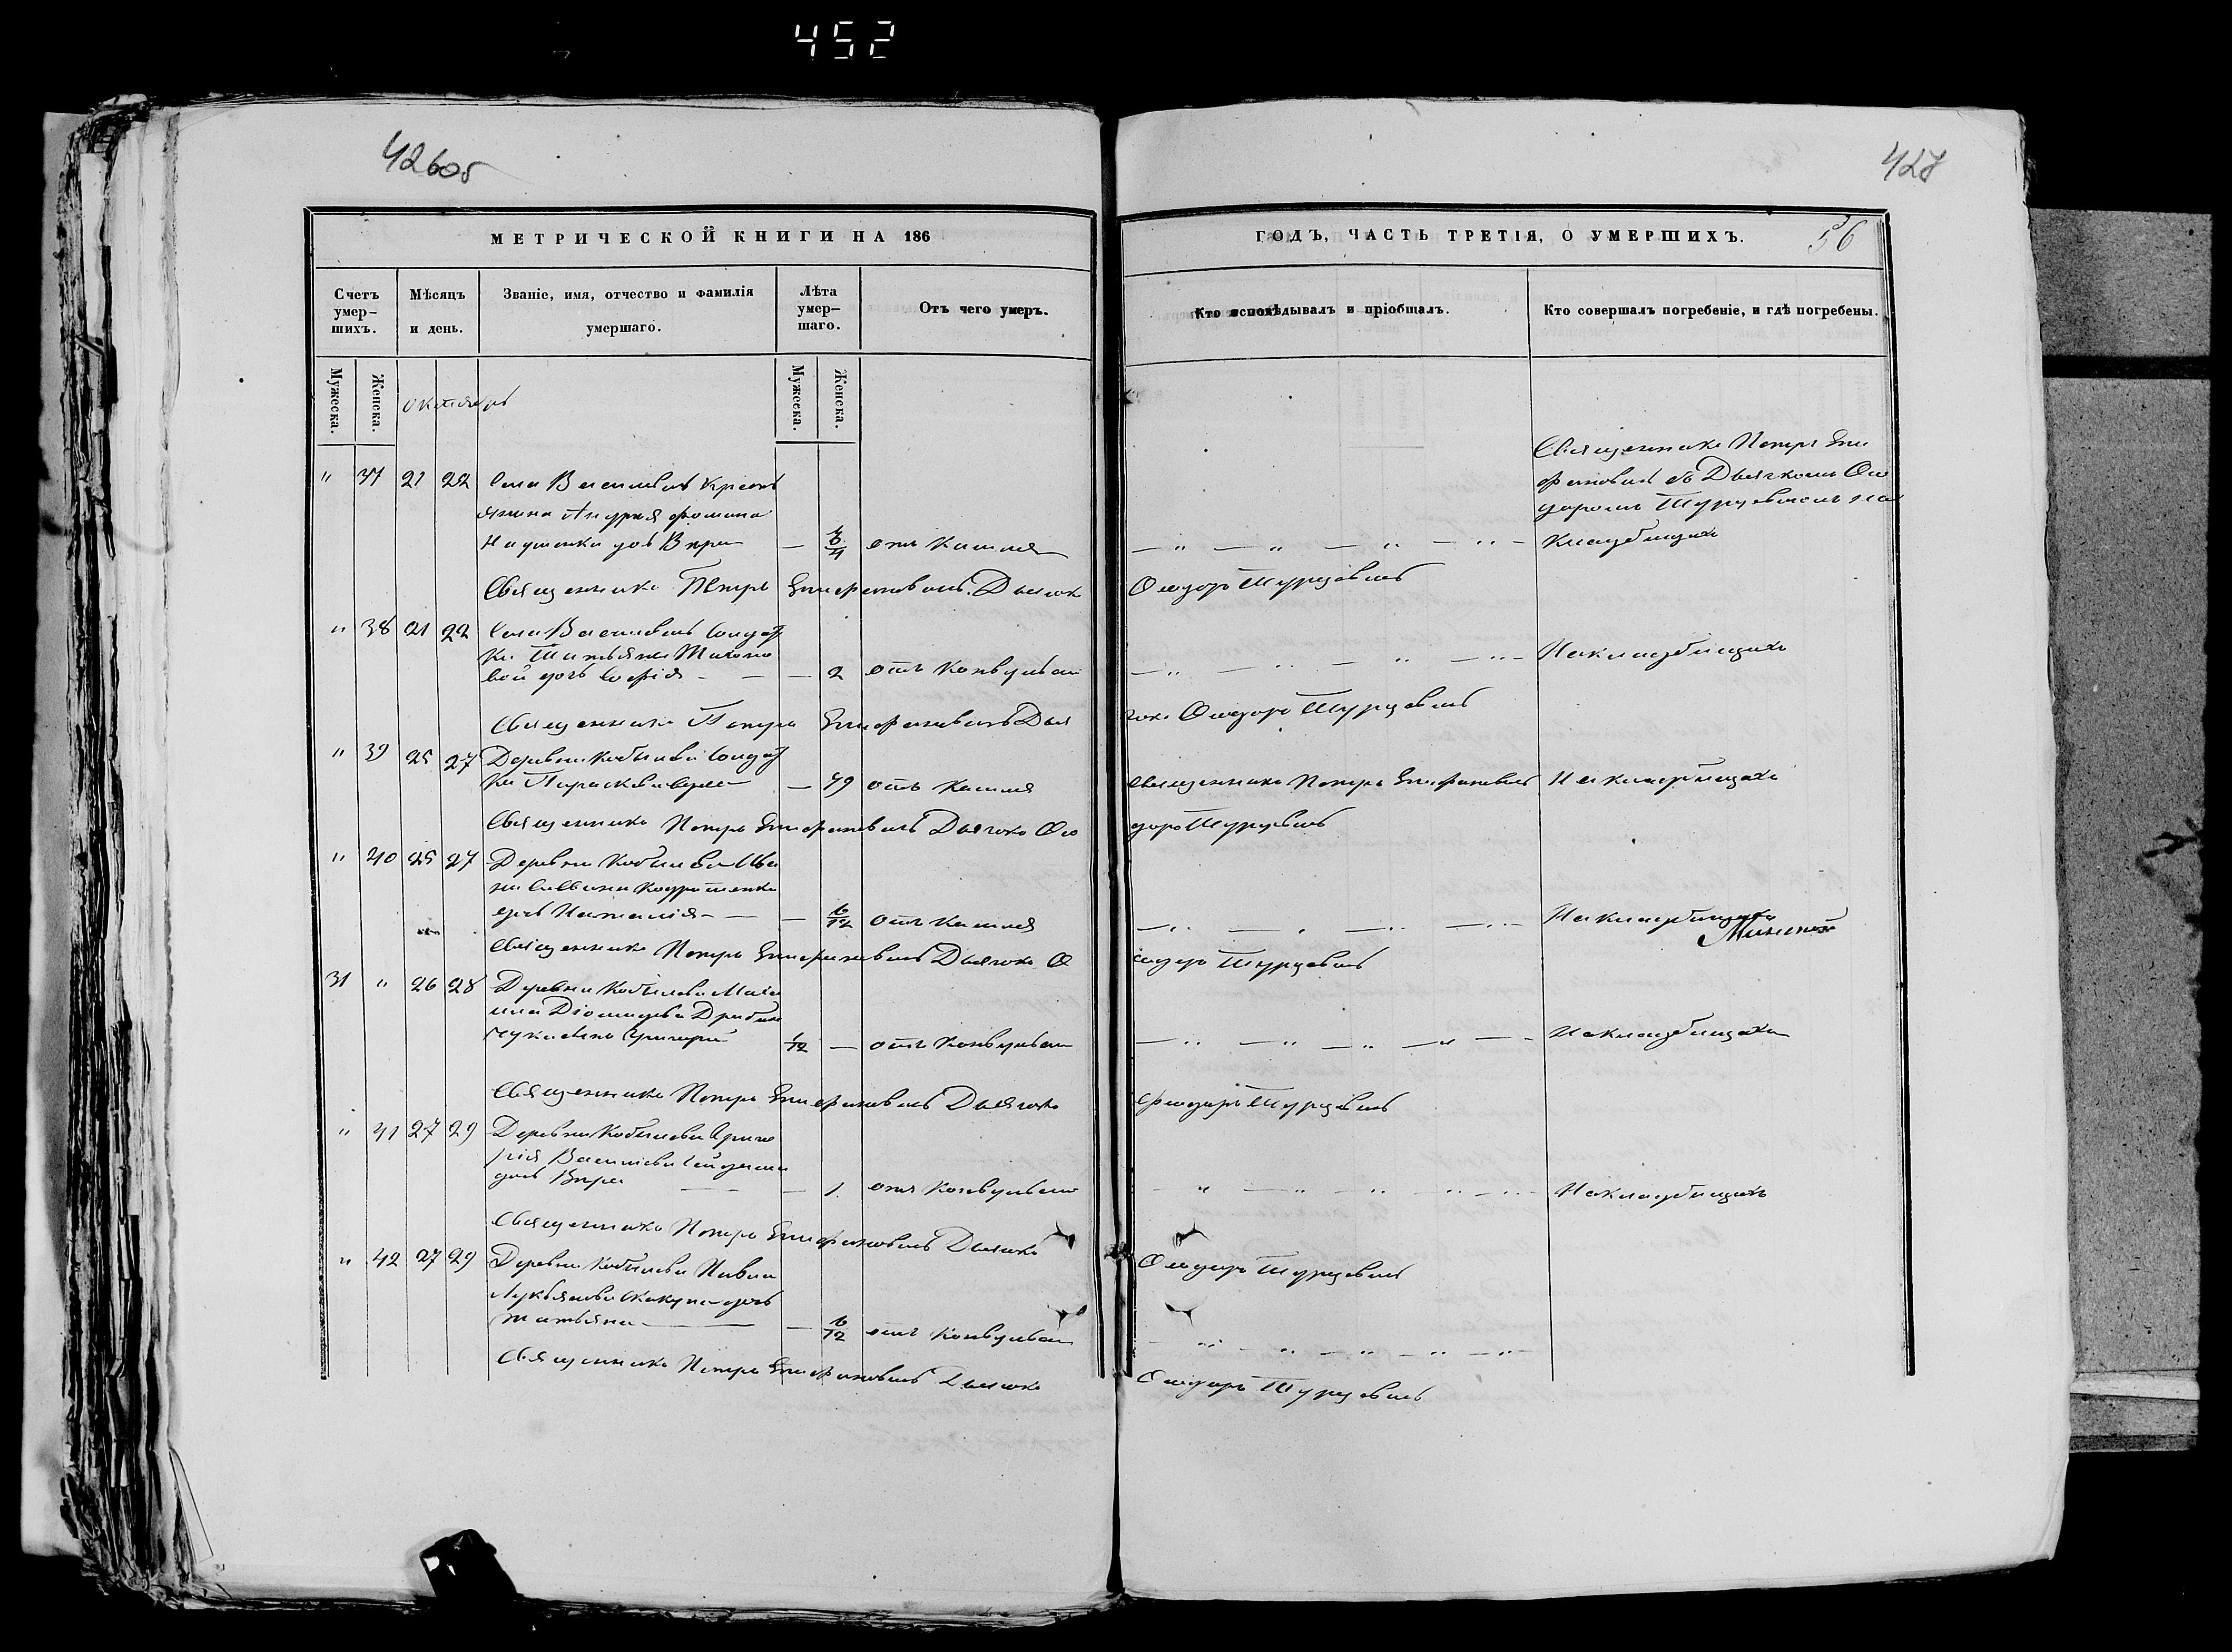 452
426об
427
МЕТРИЧЕСКОЙ КНИГИ НА 186
ГОДЪ, ЧАСТЬ ТРЕТІЯ, О УМЕРШИХЪ.
56
Счетъ умер-шихъ.
Мѣсяцъ и день.
Званіе, имя, отчество и фамилія умершаго.
Лѣта умер-шаго.
Отъ чего умеръ.
Кто исповѣдывалъ и пріобщалъ.
Кто совершалъ погребеніе, и гдѣ погребены.
Мужеска.
Женска.
Октябрь
Мужеска.
Женска.
Священникъ Петръ Епи
" 37 21 22 Села Василевъ крест
фановичъ съ Дьячкомъ Ѳео
янина Андрея Фомина
доромъ Турцевичемъ на
дочь Вѣра — отъ кашля
Кладбищѣ
Священникъ Петръ Епифановичъ Дьячокъ
Ѳеодоръ Турцевичъ
" 38 21 22 Села Василевъ солдат
ки Татьяны Тихоно
вой дочь Софія — — 2 отъ конвульсіи
На кладбищѣ
Священникъ Петръ Епифановичъ Дья
чокъ Ѳеодоръ Турцевичъ
" 39 25 27 Деревни Кобылева солдат
ка Параскева — 79 отъ кашля
Священникъ Петръ Епифановичъ
На кладбищѣ
Священникъ Петръ Епифановичъ Дьячокъ Ѳео
доръ Турцевичъ
" 40 25 27 Деревни Кобылева Ива
на Саввина
дочь Наталія — — 6/12 отъ кашля
На кладбищѣ
Священникъ Петръ Епифановичъ Дьячокъ Ѳ
еодоръ Турцевичъ
31 " 26 28 Деревни Кобылева Миха
ила Діомидова
сынъ Григорій — отъ конвульсіи
На кладбищѣ
Священникъ Петръ Епифановичъ Дьячокъ
Ѳеодоръ Турцевичъ
" 41 27 29 Деревни Кобылева Григо
рія Василіева
дочь Вѣра — — 1 отъ конвульсіи
На кладбищѣ
Священникъ Петръ Епифановичъ Дьячокъ
Ѳеодоръ Турцевичъ
" 42 27 29 Деревни Кобылева Павла
Лукьянова дочь
Татьяна — — 6/12 отъ конвульсіи
Священникъ Петръ Епифановичъ Дьячокъ
Ѳеодоръ Турцевичъ